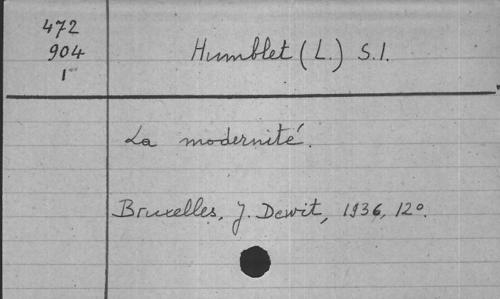 472
904
1
Humblet (L.) S.I.
La modernité.
Bruxelles, J. Dewit, 1936, 12°.